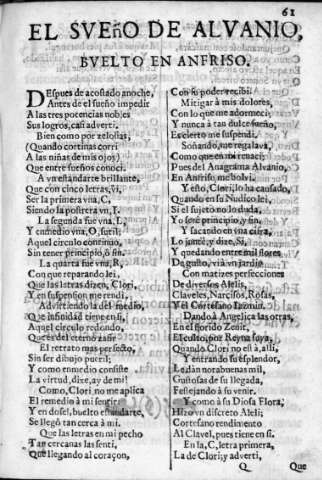 61
EL SVEñO DE ALVANIO,
BVELTO EN ANFRISO.
DEspues de acostado anoche,
Antes de el sueño impedir
A las tres potencias nobles
Sus logros, casi advertí,
Bien como por zelosias,
(Quando cortinas corri
A las niñas de mis ojos)
Que entre sueños conocí.
A vn estandarte brillante,
Que con cinco letras, vi,
Ser la primera vna, C,
Siendo la postrera vn, I.
La segunda fue vna, L,
Y enmedio vna, O, sutil;
Aquel circulo continuo,
Sin tener principio, ò fin.
La quarta fue vna, R,
Con que reparando lei,
Que las letras dizen, Clori,
Y en suspension me rendi,
Advirtiendo la del medio,
Que infinidad tiene en sí,
Aquel circulo redondo,
Que es del eterno zafir
El retrato mas perfecto,
Sin ser dibujo pueril;
Y como enmedio consiste
La virtud, dixe, ay de mi!
Como, Clori, no me aplica
El remedio à mi sentir
Y en dosel, buelto estandarte,
Se llegò tan cerca à mi.
Que las letras en mi pecho
Tan cercanas las senti,
Que llegando al coraçon,
Con su poder recibi.
Mitigar à mis dolores,
Con lo que me adormeci;
Y nunca à tan dulce sueño,
Es cierto me suspendi.
Soñando, me regalava,
Como que en mi renaci;
Pues del Anagrama Alvanio,
En Anfriso, me bolvi,
Y esto, Clori, lo ha causado,
Quando en su Nudico lei,
Si el sujeto no lo duda,
Yo serè principio, y fin,
Y sacando en vna cifra,
Lo juntè, y dize, Si,
Y quedando entre mil flores
Da gusto, vi à vn jardin
Con matizes perfecciones
De diversos Alelis,
Claveles, Narcisos, Rosas,
Y el Cortesano Iazmin.
Dando à Angelica las otras,
En el florido Zenit,
El culto, por Reyna suya,
Quando Clori no està, allí,
Y entrando su esplendor,
Le dàn norabuenas mil,
Gustosas de su llegada,
Festejando à su venir.
Y como à su Diosa Flora,
Hizo vn discreto Aleli;
Cortesano rendimento
Al Clavel, pues tiene en sí.
En la, C, letra primera,
La de Clori; y advertí,
Q
Que